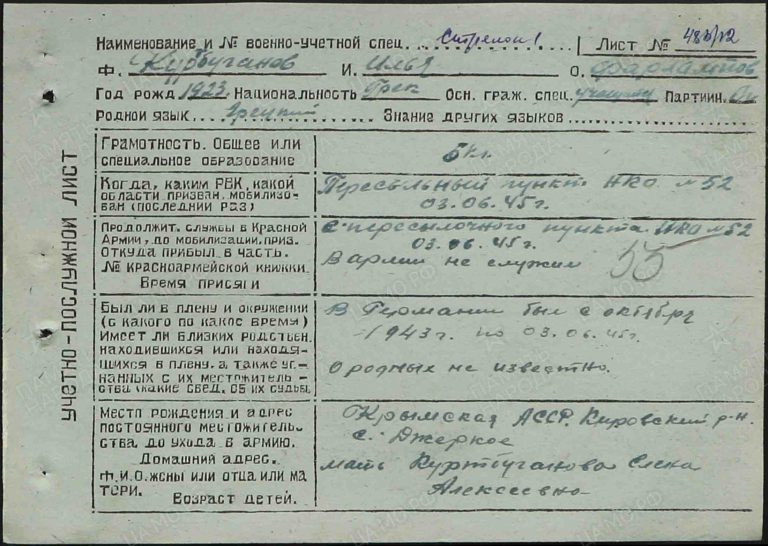 Наименование и № военно-учетной спец. Стрелок 1 Лист № 483/12
Ф. Куртбуганов И. Илья О.
Год рожд. 1923. Национальность Грек Осн. граж. спец. учащийся Партийн.
Родной язык... Греческий Знание других языков
УЧЕТНО-ПОСЛУЖНОЙ ЛИСТ
Грамотность. Общее или
специальное образование
5 кл.
Когда, каким РВК, какой
области призван, мобилизо-
ван (последний раз)
Пересыльный пункт НКО № 52
03.06.45 г.
Продолжит. службы в Красной
Армии, до мобилизации, приз.
Откуда прибыл в часть.
№ красноармейской книжки
Время присяги
С пересылочного пункта НКО № 52
03.06.45 г.
В армии не служил 55
Был ли в плену и окружении
(с какого по какое время)
Имеет ли близких родствен.
находившихся или находя-
щихся в плену, а также уг-
нанных с их местожитель-
ства (какие свед. об их судьбе)
В Германии был с октября
1943 г. по 03.06.45 г.
О родных не известно.
Место рождения и адрес
постоянного местожитель-
ства до ухода в армию.
Домашний адрес.
Ф.И.О. жены или отца или ма
тери.
Возраст детей.
Крымская АССР, Кировский р-н.
с. Джеркое
мать Куртбуганова Елена
Алексеевна